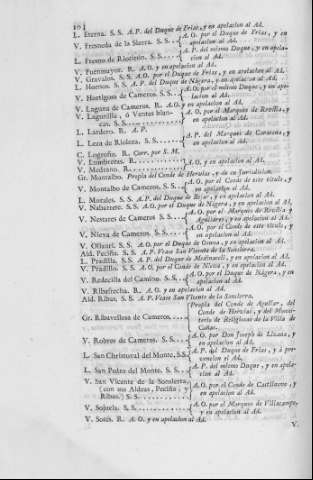 L. Eterna. S. S. A. P. del Duque de Frias, y en apelacion al Ad.
V. Fresneda de la Sierra. S. S. A. O. por el Duque de Frias, y en
apelacion al Ad.
L. Fresno de Riotirón. S. S. A. P. del mismo Duque, y en apela-
cion al Ad.
V. Fuenmayor. R. A. O. y en apelacion al Ad.
V. Gravalos. S. S. A. O. por el Duque de Frias, y en apelacion al Ad.
L. Huercos. S. S. A. P. del Duque de Nágera, y en apelacion al Ad.
V. Hortigosa de Cameros. S. S. A. O. por el mismo Duque, y en ape-
lacion al Ad.
V. Laguna de Cameros. R. A. O. y en apelacion al Ad.
V. Lagunilla, ó Ventas blan-
cas. S. S. A. O. por el Marques de Revilla, y
en apelacion al Ad.
L. Lardero. R. A. P.
L. Leza de Riolera. S. S. A. P. del Marques de Caracena, y
en apelacion al Ad.
C. Logroño. R. Corr. por S. M.
V. Lumbreras. R.
V. Medrano. R. A. O. y en apelacion al Ad.
Gr. Montalbo. Propia del Conde de Hervias, y de su Jurisdiccion.
V. Montalbo de Cameros. S. S. A. O. por el Conde de este título, y
en apelacion al Ad.
L. Morales. S. S. A. P. del Duque de Bejar, y en apelacion al Ad.
V. Navarrete. S. S. A. O. por el Duque de Nágera, y en apelacion al Ad.
V. Nestares de Cameros S. S. A. O. por el Marques de Revilla y
Aguilares, y en apelacion al Ad.
V. Nieva de Cameros. S. S. A. O. por el Conde de este título, y
en apelacion al Ad.
V. Ollauri. S. S. A. O. por el Duque de Osuna, y en apelacion al Ad.
Ald. Peciña. S. S. A. P. Vease San Vicente de la Sonsierra.
L. Pradilla. S. S. A. P. del Duque de Medinaceli, y en apelacion al Ad.
V. Pradillo. S. S. A. O. por el Conde de Nieva, y en apelacion al Ad.
V. Redecilla del Camino. S. S. A. O. por el Duque de Nágera, y en
apelacion al Ad.
V. Ribafrecha. R. A. O. y en apelacion al Ad.
Ald. Ribas. S. S. A. P. Vease San Vicente de la Sonsierra.
Gr. Ribavellosa de Cameros. Propia del Conde de Aguilar, del
Conde de Hervias, y del Monas-
terio de Religiosas de la Villa de
Cañas.
V. Robres de Cameros. S. S. A. O. por Don Joseph de Lezana, y
en apelacion al Ad.
L. San Christoval del Monte. S. S. A. P. del Duque de Frias, y á pre-
vencion el Ad.
L. San Pedro del Monte. S. S. A. P. del mismo Duque, y en apela-
cion al Ad.
V. San Vicente de la Sonsierra,
(con sus Aldeas, Peciña, y
Ribas) S. S. A. O. por el Conde de Castilnovo, y
en apelacion al Ad.
V. Sojuela. S. S. A. O. por el Marques de Villacampo,
y en apelacion al Ad.
V. Sotés. R. A. O. y en apelacion al Ad.
V.